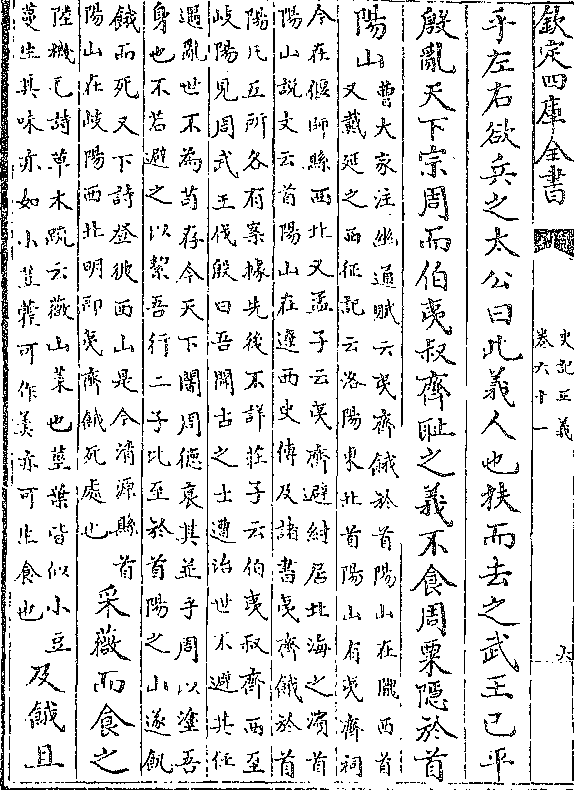 欽定四庫全書
史記正義
卷六十一
乎左右欲兵之太公曰此義人也扶而去之武王已平
殷亂天下宗周而伯夷叔齊耻之義不食周粟隱於首
陽山
曹大家注幽通賦云夷齊餓於首陽山在隴西首
又戴延之西征記云洛陽東北首陽山有夷齊祠
今在偃師縣西北又孟子云夷齊避紂居北海之濱首
陽山說文云首陽山在遼西史傳及諸書夷齊餓於首
陽凡五所各有案據先後不詳莊子云伯夷叔齊西至
岐陽見周武王伐殷曰吾聞古之士遭治世不避其任
遇亂世不為茍存今天下闇周德衰其並乎周以塗吾
身也不若避之以絜吾行二子北至於首陽之山遂飢
餓而死又下詩登彼西山是今清源縣首
陽山在岐陽西北明即夷齊餓死處也
采薇而食之
陸璣毛詩草木疏云薇山菜也莖葉皆似小豆
蔓生其味亦如小豆藿可作羮亦可生食也
及餓且